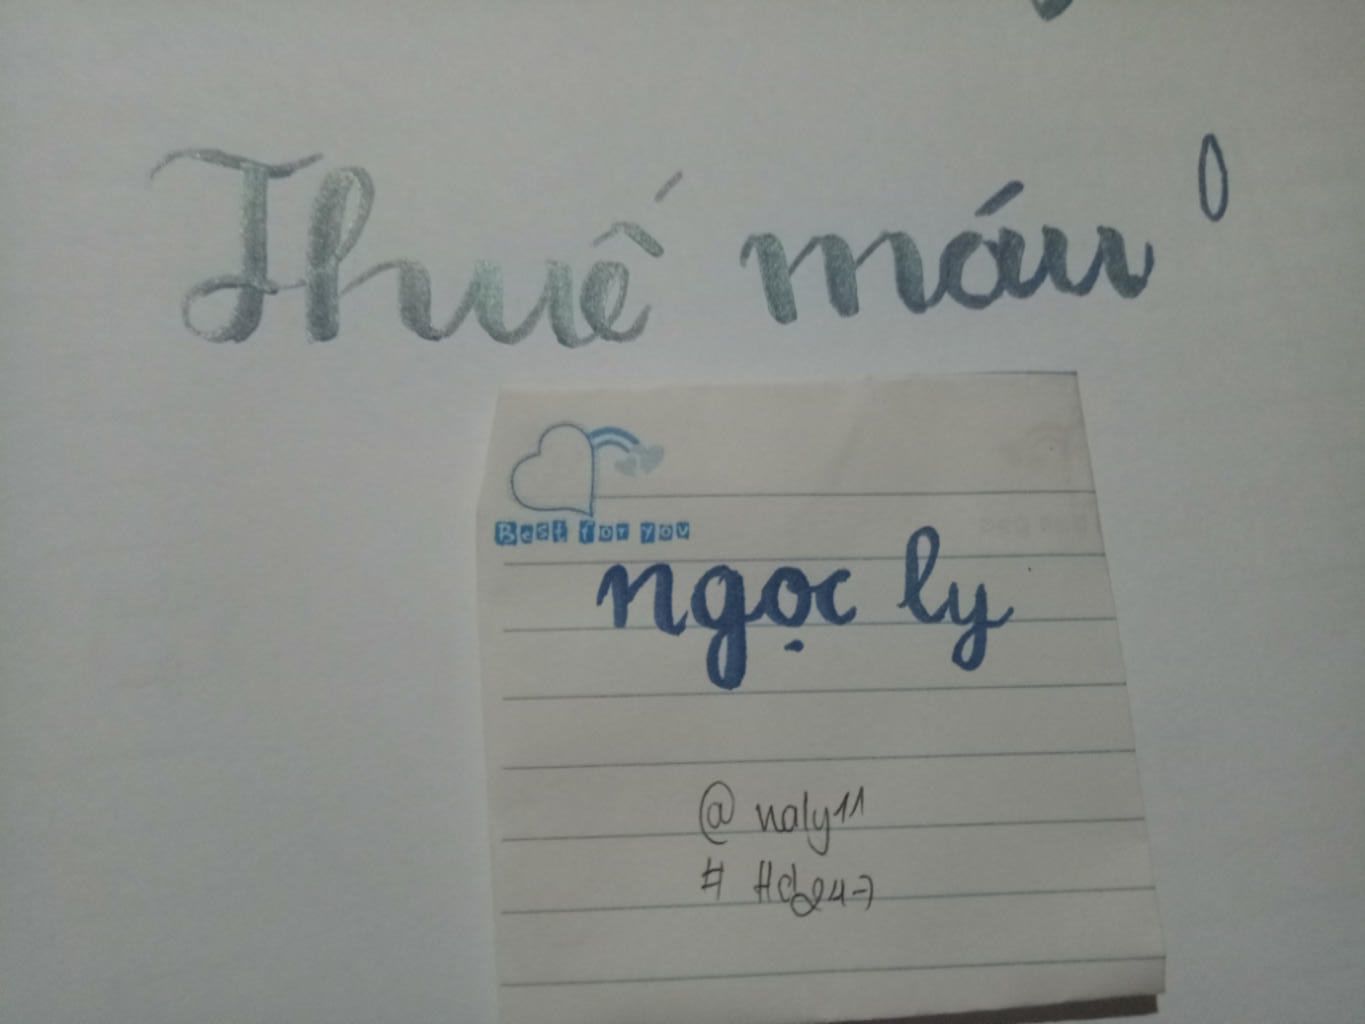 Thuế máu
Best for you
ngọc ly
@ naly11
# Hd247